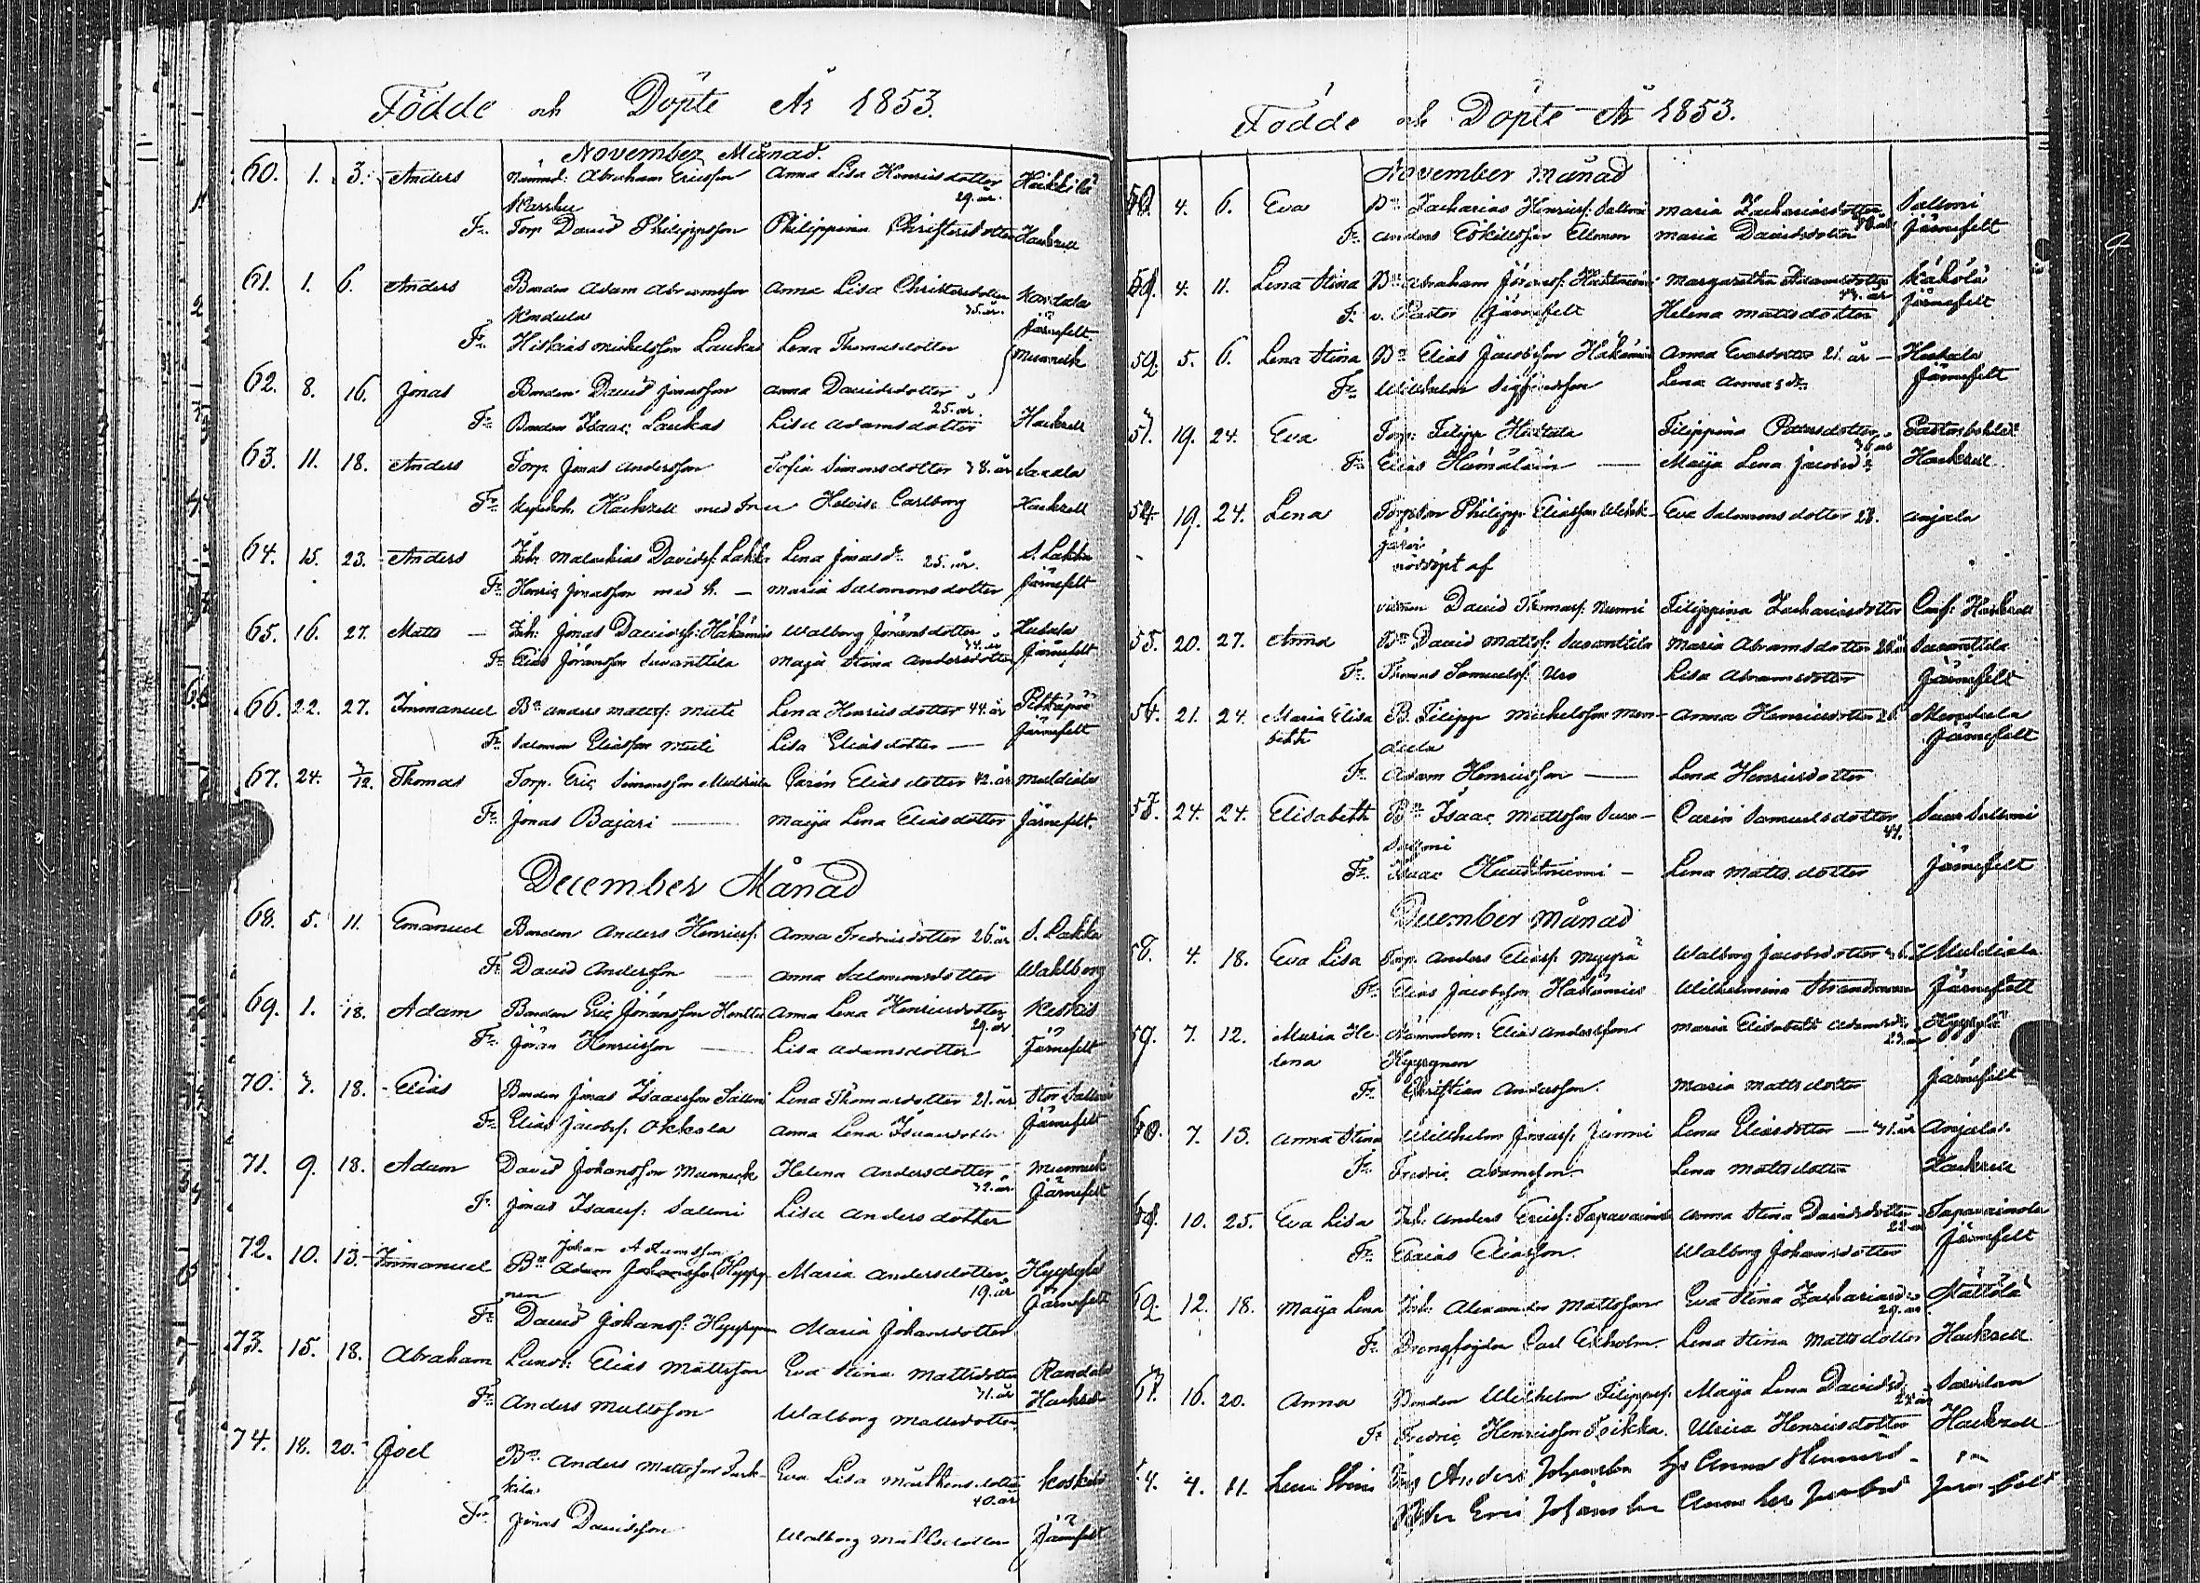 Födde och Döpte År 1853.
November Månad.
60. 1. 3. Anders Nämnd: Abraham Ericsson Anna Lisa Henricsdotter Heikkilä
29. år.
Fr. Torp David Philippsson Philippina Christersdotter Hackzell
61. 1. 6. Anders Bonden Adam Abramsson Anna Lisa Christersdotter Kondula
Kondula 35. år.
Fr. Hiskias Michelsson Laukas Lena Thomasdotter Järnefelt
62. 8. 16. Jonas Bonden David Jonasson Anna Davidsdotter Munnuk
25. år.
Fr. Bonden Isaac Laukas Lisa Adamsdotter Hackzell
63. 11. 18. Anders Torp. Jonas Andersson Sofia Simonsdotter 38. år
Fr. Hackzell med Fru Carlborg Hackzell
64. 15. 23. Anders Inh: Malachias Davidsf. Lakka Lena Jonasdr 25. år. S. Lakka
Fr. Henric Jonasson med h. — Maria Salomonsdotter Järnefelt
65. 16. 27. Matts — Inh: Jonas Davidsf: Häkämies Walborg Jöransdotter Hutala
34. år
Fr. Elias Jöransson Suvanttila Maija Stina Andersdotter Järnefelt
66. 22. 27. Immanuel Bn Anders Mattsf: Mieli Lena Henricsdotter 44. år Pitkäpää
Fr. Salomon Eliasson Mieli Lisa Eliasdotter — Järnefelt
67. 24. 3/12. Thomas Torp. Eric Simonsson Muldiala Carin Eliasdotter 42. år Muldiala
Fr. Jonas Bajari — Maija Lena Eliasdotter Järnefelt.
December Månad
68. 5. 11. Emanuel Bonden Anders Henricsf. Anna Fredricsdotter 26. år S. Lakka
Fr. David Andersson — Anna Salomonsdotter Wahlborg
69. 1. 18. Adam Bonden Eric Jöransson Anna Lena Henricsdotter Keskis
29. år
Fr. Jöran Henricsson — Lisa Adamsdotter Järnefelt
70. 7. 18. Elias Bonden Jonas Isaacsson Salloni Lena Thomasdotter 21. år Stor Salloni
Fr. Elias Jacobsf. Okkola Anna Lena Isaacsdotter Järnefelt
71. 9. 18. Adam David Johansson Munnuck Helena Andersdotter Munnuk
32. år
Fr. Jonas Isaacsf. Salloni Lisa Andersdotter Järnefelt
Johan Adamsson
72. 10. 13. Immanuel Bn Adam Johansson Hyypy- Maria Andersdotter Hyypylä
nen 19. år
Fr. David Johansf: Hyypynen Maria Johansdotter Järnefelt
73. 15. 18. Abraham Landb: Elias Mattsson Eva Stina Mattsdotter Randala
31. år
Fr. Anders Mattsson Walborg Mattsdotter Hackzell
74. 18. 20. Joel Bn Anders Mattsson Turk- Eva Lisa Mårtensdotter Koskela
kila 40. år
Fr. Jonas Davidsson Walborg Mattsdotter Järnefelt
Födde och Döpte År 1853.
November Månad
50. 4. 6. Eva Bn Zacharias Henricsf: Salloni Maria Zachariasdotter Salloni
Fr. Anders Eskilsson Ellonen Maria Davidsdotter Järnefelt
51. 4. 11. Lena Stina Bn Abraham Jöransf: Margaretha Adamsdotter Käkölä
43. år
F. v. Pastor Järnefelt Helena Mattsdotter Järnefelt
52. 5. 6. Lena Stina Bn Elias Jacobsson Häkämies Anna Evasdotter 21. år — Hutala
Fr. Wilhelm Sigfridsson Lena Järnefelt
53. 19. 24. Eva Torp: Filipp Huttala Filippina Petersdotter Pastorbohlet
36 år
Fr. Elias Hämäläin — Maija Lena Jacobsdr Hackzell
54. 19. 24. Lena Torparen Philipp Eliasson Eva Salomonsdotter 28. Anjala
järvi
nöddöpt af
David Thomasf: Nurmi Filippina Zachariasdotter Conf: Hackzell
55. 20. 27. Anna Bn David Mattsf: Suvanttila Maria Abramsdotter 28. år Suvanttila
Fr. Thomas Samuelsf: Uro Lisa Abramsdotter Järnefelt
56. 21. 24. Maria Elisa B. Filipp Michelsson Men- Anna Henricsdotter Mendela
beth dela Järnefelt
Fr. Adam Henricsson — Lena Henricsdotter
57. 24. 24. Elisabeth Bn Isaac Mattsson Suur- Carin Samuelsdotter Suur Salloni
Salloni 41.
Fr. Isaac Huuhtniemi — Lena Mattsdotter Järnefelt
December Månad
58. 4. 18. Eva Lisa Torp. Anders Eliasf: Myyrä Walborg Jacobsdotter Muldiala
Fr. Elias Jacobsson Häkämies Wilhelmina Järnefelt
59. 7. 12. Maria He- Nämndem: Elias Andersson Maria Elisabeth Adamsdr Hyypylä
lena Hyypynen
Fr. Christian Andersson. Maria Mattsdotter Järnefelt
60. 7. 13. Anna Stina Willhelm Jonasf: Junni Lena Eliasdotter — 31. år Anjala.
Fr. Fredric Adamsson Lena Mattsdotter Hackzell
61. 10. 25. Eva Lisa Inh: Anders Ericsf: Tapavainola Anna Stina Davidsdotter Tapavainola
22. år
Fr. Esaias Eliasson. Walborg Johansdotter Järnefelt
62. 12. 18. Maija Lena Inh: Alexander Mattsson Eva Stina Zachariasdr Mättölä
29. år
Fr. Drengfogden Carl Ekholm. Lena Stina Mattsdotter Hackzell
63. 16. 20. Anna Bonden Wilhelm Filippsf. Maija Lena Davidsd. Savilan
Fr. Fredric Henricsson Toikka. Ulrica Henricsdotter Hackzell
4. 4. 11. Lena Stina Torp Anders Johansson h. Anna Henricsd.
Eric Johansson Anna Lisa Jacobsd Järnefelt